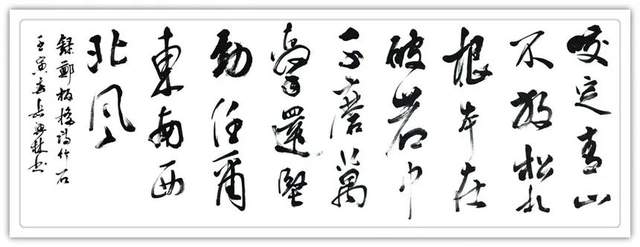 咬定青山
不放松扎
根本在
破岩中
千磨萬
擊還堅
勁任爾
東南西
北風
錄鄭板橋詩竹石
壬寅春吳書